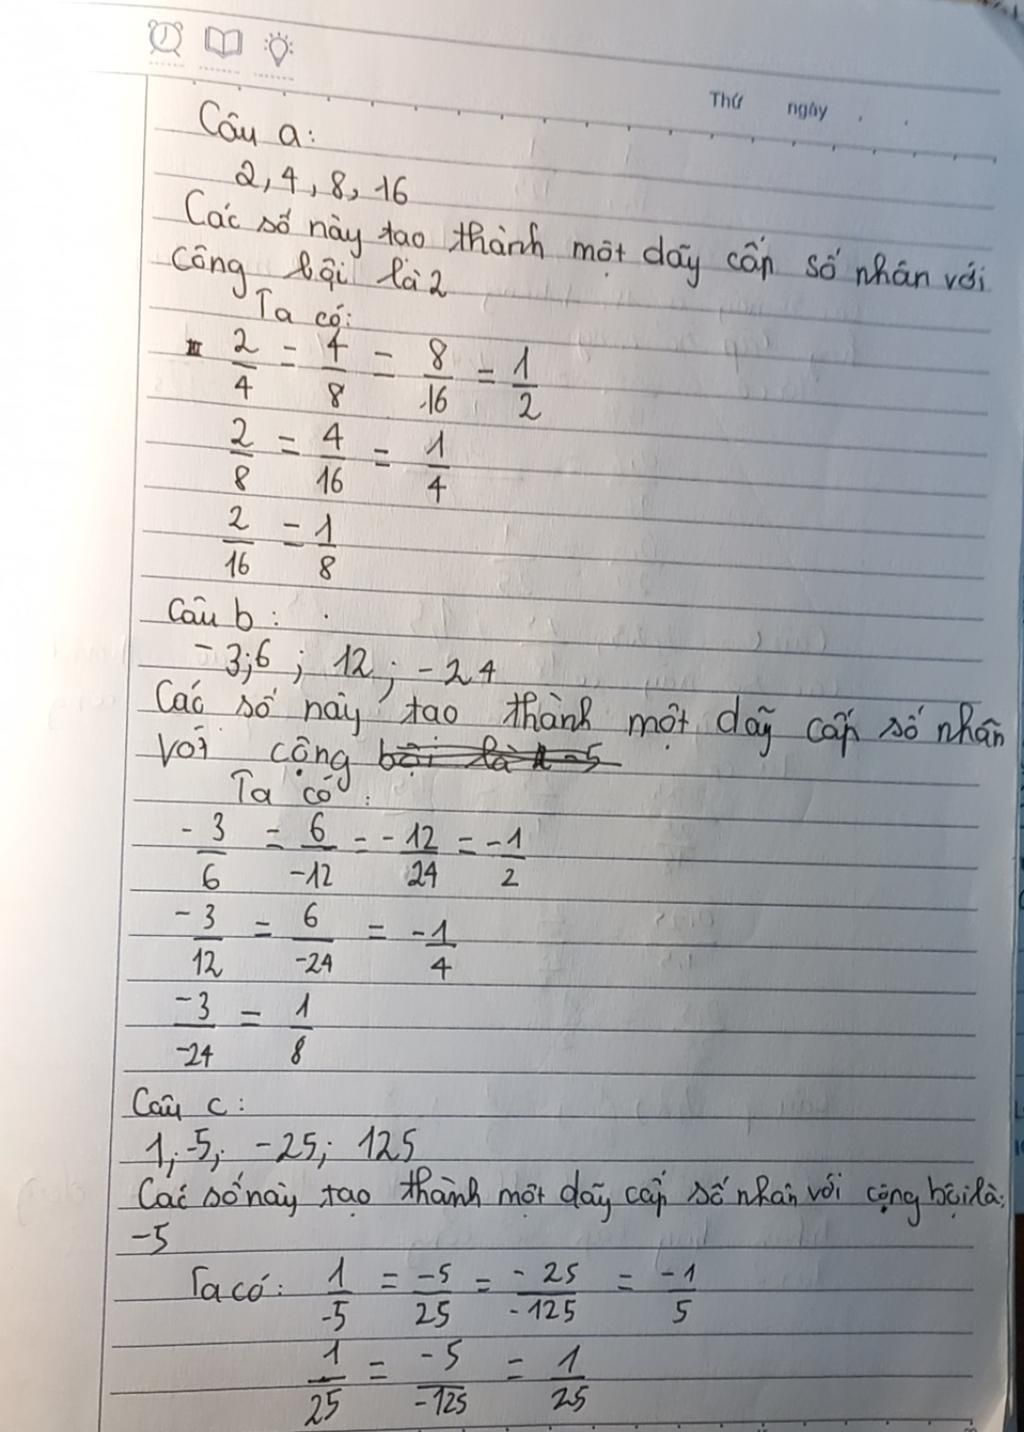 Thứ ngày . .
Câu a:
2, 4, 8, 16
Các số này tạo thành một dãy cấp số nhân với
công bội là 2
Ta có:
2/4 = 4/8 = 8/16 = 1/2
2/8 = 4/16 = 1/4
2/16 = 1/8
Câu b:
-3; 6; 12; -24
Các số này tạo thành một dãy cấp số nhân
với công bội là -5
Ta có:
-3/6 = 6/-12 = -12/24 = -1/2
-3/12 = 6/-24 = -1/4
-3/-24 = 1/8
Câu c:
1; -5; -25; 125
Các số này tạo thành một dãy cấp số nhân với công bội là:
-5
Ta có: 1/-5 = -5/25 = -25/-125 = -1/5
1/25 = -5/-125 = 1/25